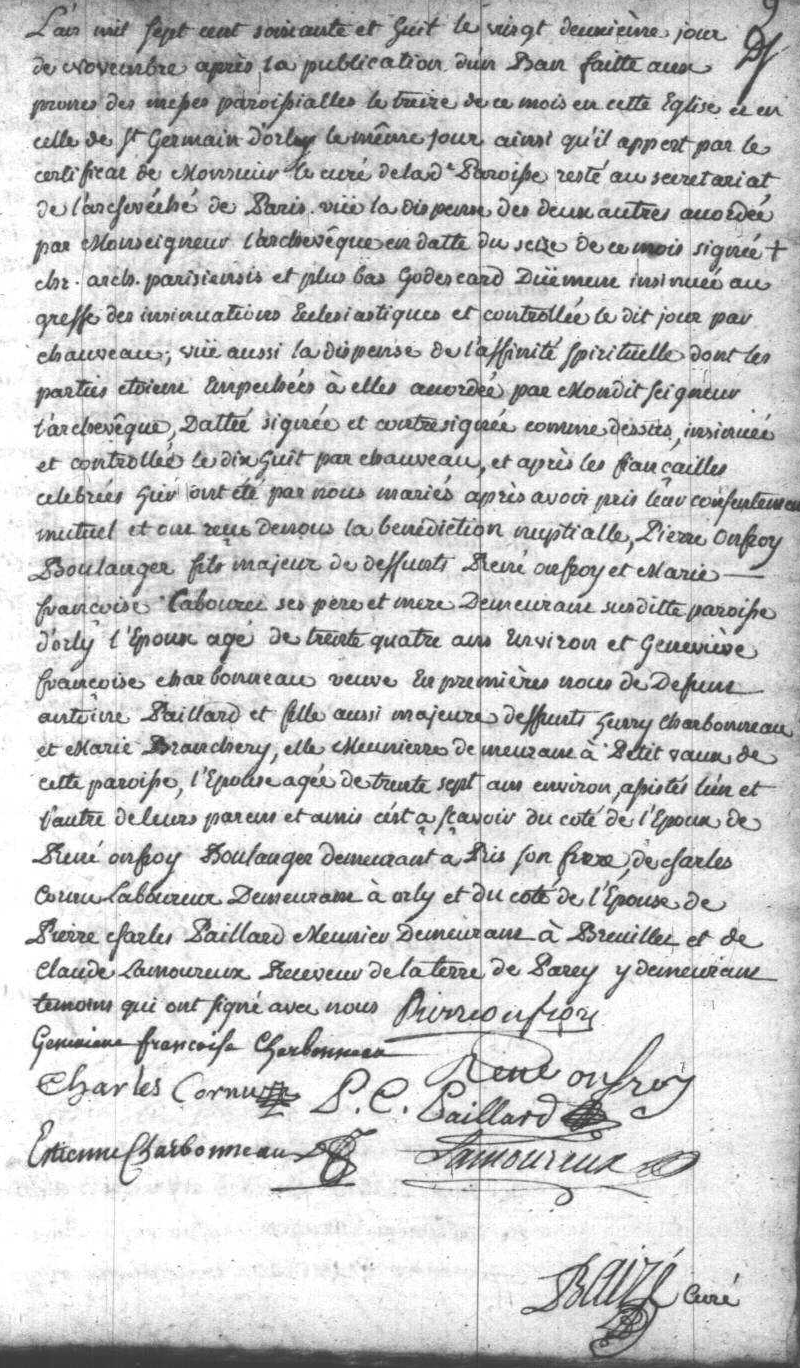 L'an mil sept cent soixante et huit le vingt deuxième jour
de Novembre après la publication d'un Ban faitte aux
prones des messes paroissialles le treize de ce mois en cette Eglise et en
celle de St Germain d'orly le même jour ainsi qu'il appert par le
certificat de Monsieur le curé de lad.e Paroisse resté au secretariat
de l'archevêché de Paris. vüe la dispense des deux autres accordée
par Monseigneur l'archevêque en datte du seize de ce mois signée +
chr. arch. parisiensis et plus bas Godescard Düement insinuée au
greffe des insinuations Ecclesiastiques et controllée le dit jour par
chauveau; vüe aussi la dispense de l'affinité spirituelle dont les
parties étoient Empechées à elles accordée par Mondit seigneur
l'archevêque, Dattée signée et contresignée comme dessus, insinuée
et controllée le dix huit par chauveau, et après les fiançailles
celebrées hier ont été par nous mariés après avoir pris leur consentement
mutuel et ont reçu de nous la benediction nuptialle, Pierre onfroy
Boulanger fils majeur de deffunts René onfroy et Marie
françoise Cabouret ses pere et mere Demeurant susditte paroisse
d'orly l'Epoux agé de trente quatre ans Environ et Geneviève
françoise charbonneau veuve En premières noces de Defunt
antoine Paillard et fille aussi majeure deffunts henry Charbonneau
et Marie Branchery, elle Meunierre demeurant à Petit vaux de
cette paroisse, l'Epouse agée de trente sept ans environ, assistés l'un et
l'autre de leurs parens et amis c'est a sçavoir du coté de l'Epoux de
René onfroy Boulanger demeurant à Ris son frere, de charles
cornu Laboureur Demeurant à orly et du coté de l'Epouse de
Pierre charles Paillard Meunier Demeurant à Breuillet et de
Claude Lamoureux Receveur de la terre de Parey y demeurant
temoins qui ont signé avec nous Pierre onfroy
Genevieve françoise Charbonneau
René onfroy
Charles Cornu P. C. Paillard
Etienne Charbonneau Lamoureux
Baizé Curé